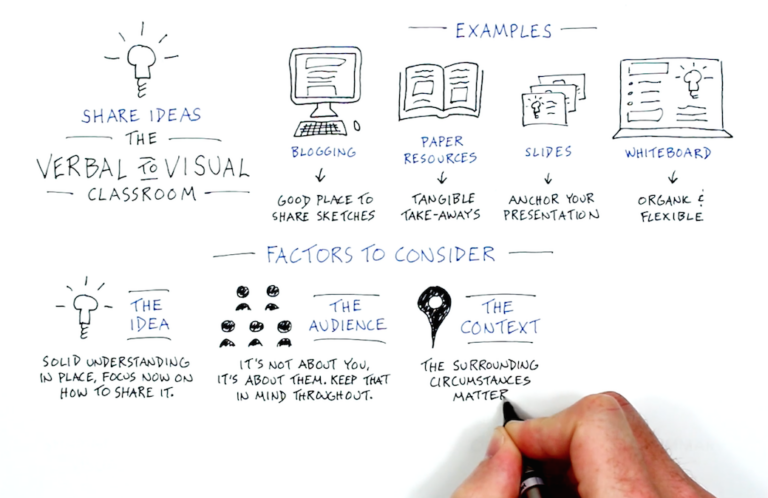 SHARE IDEAS
THE
VERBAL TO VISUAL
CLASSROOM
EXAMPLES
BLOGGING
GOOD PLACE TO
SHARE SKETCHES
PAPER
RESOURCES
TANGIBLE
TAKE-AWAYS
SLIDES
ANCHOR YOUR
PRESENTATION
WHITEBOARD
ORGANIC &
FLEXIBLE
FACTORS TO CONSIDER
THE
IDEA
SOLID UNDERSTANDING
IN PLACE, FOCUS NOW ON
HOW TO SHARE IT.
THE
AUDIENCE
IT'S NOT ABOUT YOU,
IT'S ABOUT THEM. KEEP THAT
IN MIND THROUGHOUT.
THE
CONTEXT
THE SURROUNDING
CIRCUMSTANCES
MATTER